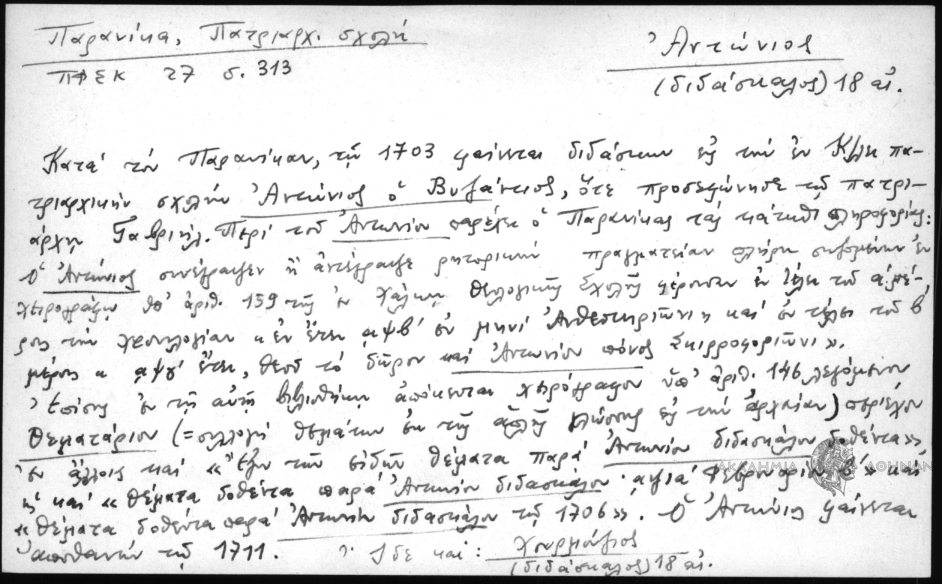 Παρανίκα, Πατριαρχ. σχολή
ΠΦΣΚ 27 σ. 313
Ἀντώνιος
(διδάσκαλος) 18 αἰ.
Κατά τόν Παρανίκαν, τῷ 1703 φαίνεται διδάσκων εἰς τήν ἐν Κ/λει πα-
τριαρχικήν σχολήν Ἀντώνιος ὁ Βυζάντιος, ὅτε προσεφώνησε τῷ πατρι-
άρχῃ Γαβριήλ. Περί τοῦ Ἀντωνίου παρέχει ὁ Παρανίκας τάς κάτωθι πληροφορίας:
Ὁ Ἀντώνιος συνέγραψεν ἤ ἀντέγραψε ρητορικήν πραγματείαν πλήρη σωζομένην ἐν
χειρογράφῳ ὑπ' ἀριθ. 159 τῆς ἐν Χάλκῃ Θεολογικῆς Σχολῆς φέρουσαν ἐν τέλει τοῦ α' μέ-
ρους τήν χρονολογίαν «ἐν ἔτει αψβ' ἐν μηνί Ἀνθεστηριῶνι» καί ἐν τέλει τοῦ β'
μέρους « αψγ' ἔτει, θεοῦ τό δῶρον καί Ἀντωνίου πόνος Σκιρροφοριῶνι».
Ἐπίσης ἐν τῇ αὐτῇ βιβλιοθήκῃ ἀπόκειται χειρόγραφον ὑπ' ἀριθ. 146 λεγόμενον
Θεματάριον (=συλλογή θεμάτων ἐκ τῆς ἁπλῆς γλώσσης εἰς τήν ἀρχαίαν) περιέχον
ἐν ἄλλοις καί « τῶν εἰδῶν θέματα παρά Ἀντωνίου διδασκάλου δοθέντα»
ὡς καί « θέματα δοθέντα παρά Ἀντωνίου διδασκάλου Φεβρουαρίου β'» καί
« θέματα δοθέντα παρά Ἀντωνίου διδασκάλου τῷ 1706». Ὁ Ἀντώνιος φαίνεται
ἀποθανών τῷ 1711. Ἴδε καί: Χουρμούζιος
(διδάσκαλος) 18 αἰ.
ΑΚΑΔΗΜΙΑ ΑΘΗΝΩΝ